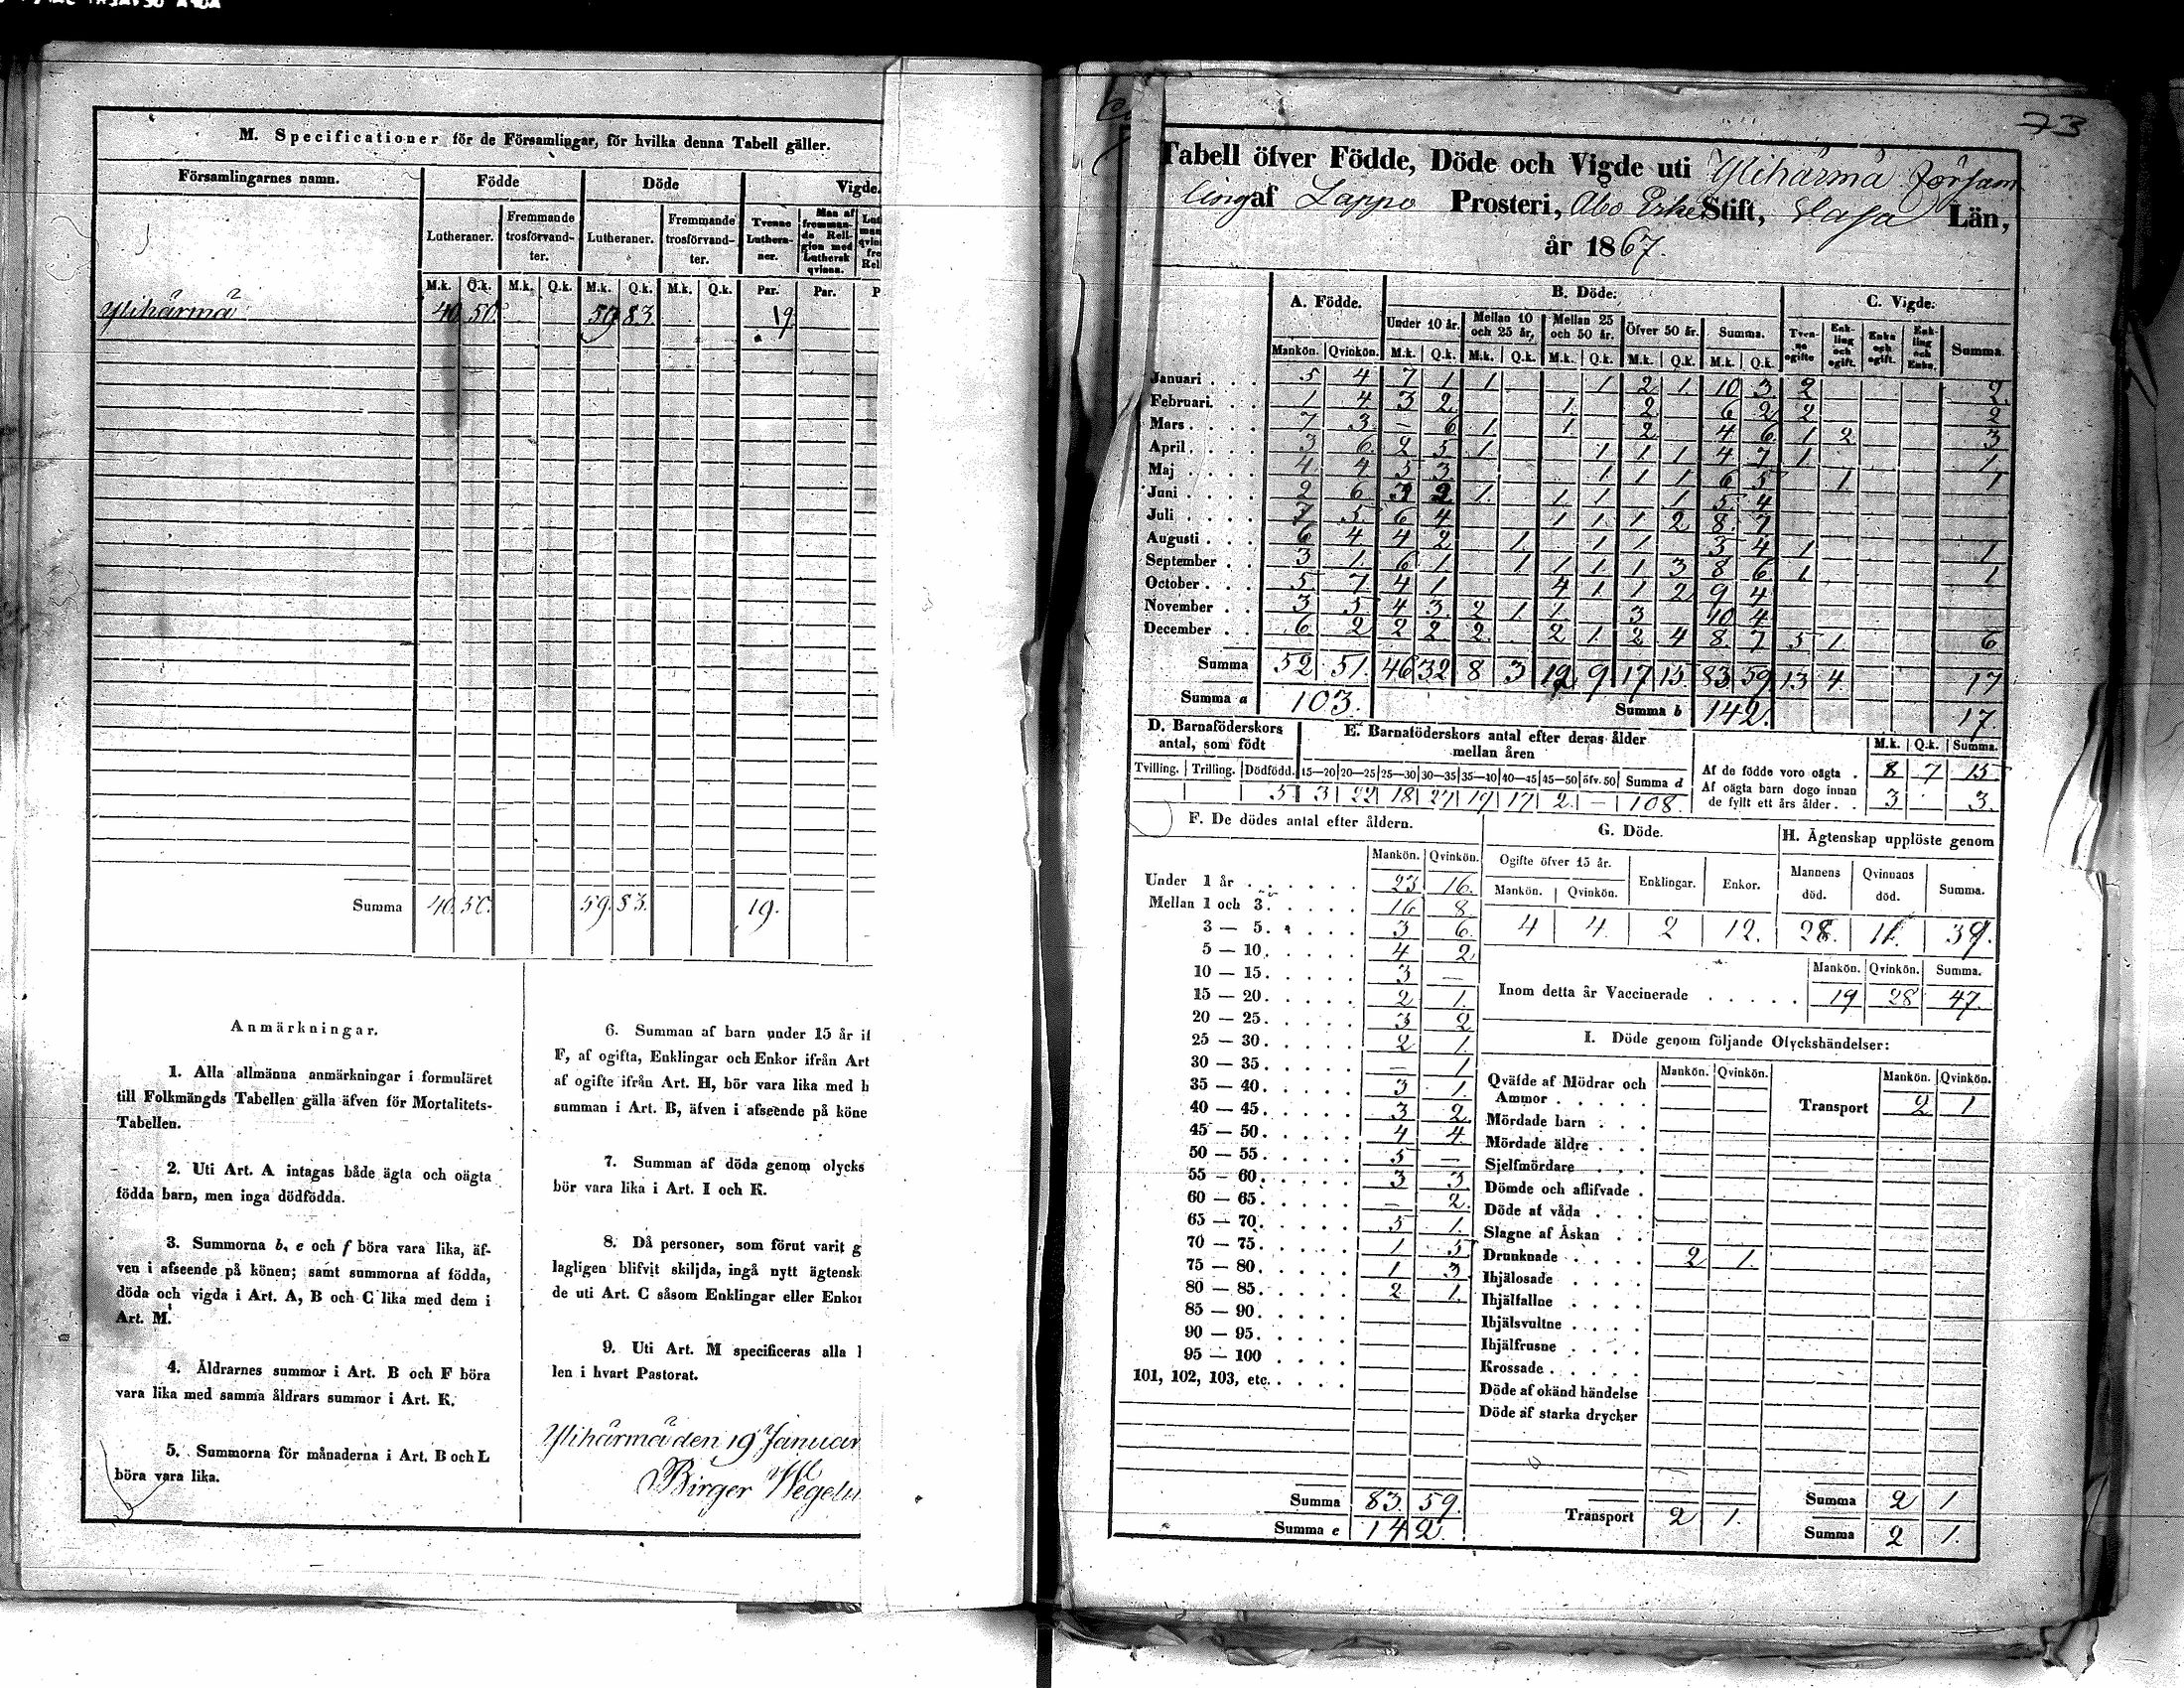 M. Specificationer för de Församlingar, för hvilka denna Tabell gäller.
Församlingarnes namn. Födde Döde Vigde.
Lutheraner. Fremmande trosförvandter. Lutheraner. Fremmande trosförvandter. Tvenne Lutheraner. Man af fremmande Religion med Luthersk qvinna.
M.k. Q.k. M.k. Q.k. M.k. Q.k. M.k. Q.k. Par. Par. P
Ylihärmä 40 50. 59 83. 19
Summa 40. 50. 59. 83. 19.
Anmärkningar.
1. Alla allmänna anmärkningar i formuläret
till Folkmängds Tabellen gälla äfven för Mortalitets-
Tabellen.
2. Uti Art. A intagas både ägta och oägta
födda barn, men inga dödfödda.
3. Summorna b, e och f böra vara lika, äf-
ven i afseende på könen; samt summorna af födda,
döda och vigda i Art. A, B och C lika med dem i
Art. M.
4. Åldrarnes summor i Art. B och F böra
vara lika med samma åldrars summor i Art. K.
5. Summorna för månaderna i Art. B och L
böra vara lika.
6. Summan af barn under 15 år if
F, af ogifta, Enklingar och Enkor ifrån Art
af ogifte ifrån Art. H, bör vara lika med h
summan i Art. B, äfven i afseende på köne
7. Summan af döda genom olycks
bör vara lika i Art. I och K.
8. Då personer, som förut varit g
lagligen blifvit skiljda, ingå nytt ägtensk
de uti Art. C såsom Enklingar eller Enkor
9. Uti Art. M specificeras alla
len i hvart Pastorat.
Ylihärmä den 19 Januar
Birger Wegeliu
73
Tabell öfver Födde, Döde och Vigde uti Ylihärmä Försam
ling af Lappo Prosteri, Åbo Erke Stift, Vasa Län,
år 1867.
A. Födde. B. Döde. C. Vigde.
Under 10 år. Mellan 10 och 25 år. Mellan 25 och 50 år. Öfver 50 år. Summa. Tvenne ogifte Enkling och ogift. Enka och ogift. Enkling och Enka. Summa.
Mankön. Qvinkön. M.k. Q.k. M.k. Q.k. M.k. Q.k. M.k. Q.k. M.k. Q.k.
Januari 5 4 7 1 1 1 2 1 10 3 2 2
Februari. 1 4 3 2 1 2 6 2 2 2
Mars 7 3 – 6 1 1 2 4 6 1 2 3
April 3 6 2 5 1 1 1 1 4 7 1 1
Maj 4 4 5 3 1 1 1 6 5 1 1
Juni 2 6 3 2 1 1 1 1 5 4
Juli 7 5 6 4 1 1 1 2 8 7
Augusti 6 4 4 2 1 1 1 4 1 1
September 3 1 6 1 1 1 1 1 3 8 6 1 1
October 5 7 4 1 4 1 1 2 9 4
November 3 5 4 3 2 1 1 3 10 4
December 6 2 2 2 2 2 1 2 4 8 7 5 1 6
Summa 52 51. 46 32 8 3 12 9 17 15 83 59 13 4 17
Summa a 103. Summa b 142. 17
D. Barnaföderskors antal, som födt
E. Barnaföderskors antal efter deras ålder mellan åren
Tvilling. Trilling. Dödfödd. 15—20 20—25 25—30 30—35 35—40 40—45 45—50 öfv. 50 Summa d
5 3 22 18 27 19 17 2 – 108.
M.k. Q.k. Summa.
Af de födde voro oägta 8 7 15
Af oägta barn dogo innan
de fyllt ett års ålder 3 3.
F. De dödes antal efter åldern.
Mankön. Qvinkön.
Under 1 år 23 16.
Mellan 1 och 3. 16 8
3 — 5. 3 6.
5 — 10. 4 2
10 — 15. 3 –
15 — 20. 2 1.
20 — 25. 3 2
25 — 30. 2 1.
30 — 35. – 1
35 — 40. 3 1.
40 — 45. 3 2
45 — 50. 4 4.
50 — 55. 5 –
55 — 60. 3 3
60 — 65. – 2.
65 — 70. 5 1.
70 — 75. 1 5
75 — 80. 1 3
80 — 85. 2 1.
85 — 90.
90 — 95.
95 — 100
101, 102, 103, etc.
Summa 83. 59.
Summa e 142.
G. Döde.
Ogifte öfver 15 år. Enklingar. Enkor.
Mankön. Qvinkön.
4 4. 2 12.
H. Ägtenskap upplöste genom
Mannens död. Qvinnans död. Summa.
28. 11. 39.
Mankön. Qvinkön. Summa.
Inom detta år Vaccinerade 19 28 47.
I. Döde genom följande Olyckshändelser:
Mankön. Qvinkön. Mankön. Qvinkön.
Qväfde af Mödrar och
Ammor
Transport 2 1
Mördade barn
Mördade äldre
Sjelfmördare
Dömde och aflifvade
Döde af våda
Slagne af Åskan
Drunknade 2 1.
Ihjälosade
Ihjälfallne
Ihjälsvultne
Ihjälfrusne
Krossade
Döde af okänd händelse
Döde af starka drycker
Transport 2 1.
Summa 2 1
Summa 2 1.